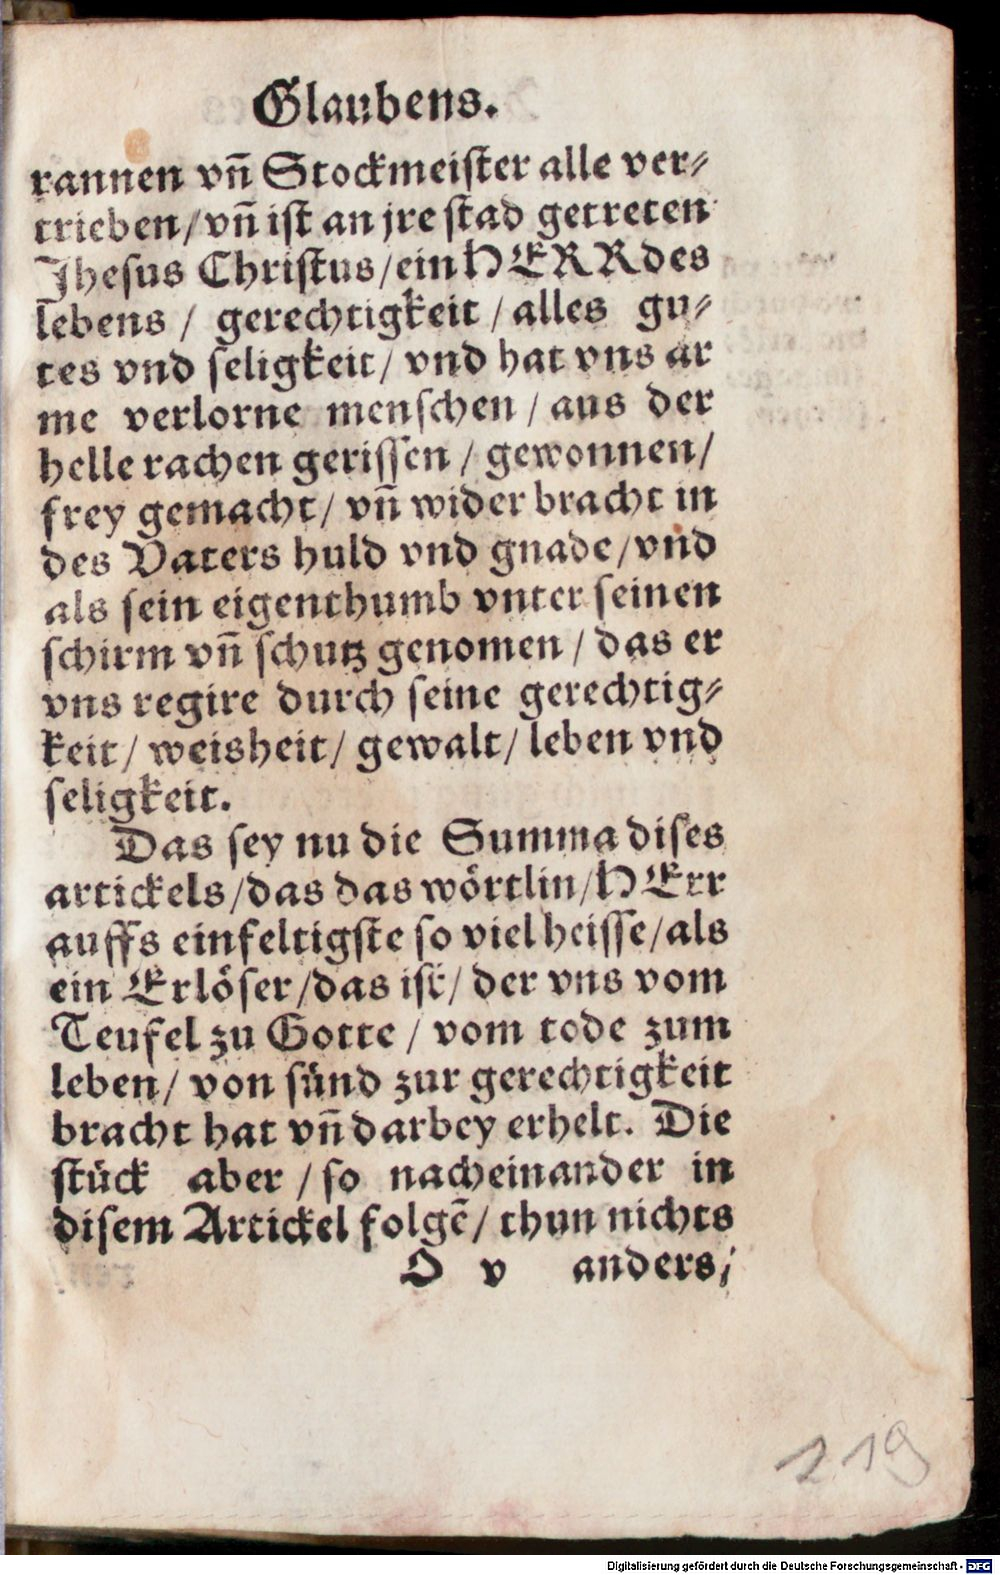 Glaubens.
rannen vñ Stockmeister alle ver⸗
trieben/vñ ist an jre stad getreten
Jhesus Christus/ein HERR des
lebens / gerechtigkeit / alles gu⸗
tes vnd seligkeit/ vnd hat vns ar
me verlorne menschen / aus der
helle rachen gerissen / gewonnen/
frey gemacht/ vñ wider bracht in
des Vaters huld vnd gnade/vnd
als sein eigenthumb vnter seinen
schirm vñ schutz genomen / das er
vns regire durch seine gerechtig⸗
keit/ weisheit/ gewalt/ leben vnd
seligkeit.
Das sey nu die Summa dises
artickels/das das wörtlin/HErr
auffs einfeltigste so viel heisse/als
ein Erlöser/das ist/ der vns vom
Teufel zu Gotte / vom tode zum
leben/ von sünd zur gerechtigkeit
bracht hat vñ darbey erhelt. Die
stück aber / so nacheinander in
disem Artickel folgē/ thun nichts
O v anders/
219
Digitalisierung gefördert durch die Deutsche Forschungsgemeinschaft - DFG